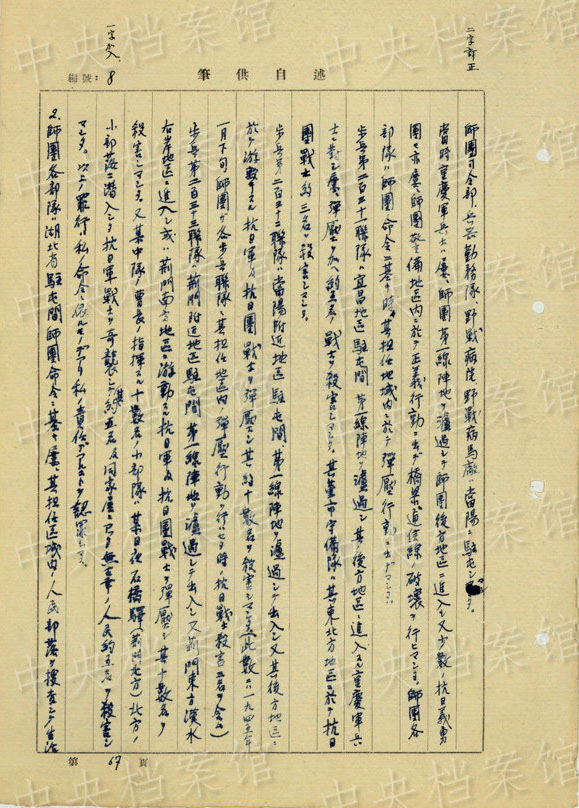 二字訂正
一字欠
編號: 8
筆供自述
師團司令部、兵器勤務隊、野戰病院、野戰病馬廠ハ當陽ニ駐屯シマシタ。
當時重慶軍兵士ハ屢、師團第一線陣地ヲ濾過シテ師團後方地區ニ進入シ又少數ノ抗日義勇
團モ亦屢、師團警備地區内ニ於テ正義行動ニ出デ橋梁、通信線ノ破壞ヲ行ヒマシタ。師團各
部隊ハ師團命令ニ基キ時々其擔任地域内ニ於テ彈壓行動ニ出デマシタ。
步兵第二百三十一聯隊ハ宜昌地區駐屯間第一線陣地ヲ濾過シ其後方地區ニ進入スル重慶軍兵
士ニ對シ屢、彈壓ヲ加ヘ約五名ノ戰士ヲ殺害シマシタ。其董市守備隊ハ其東北方地區ニ於テ抗日
團戰士約三名ヲ殺害シマシタ。
步兵第二百三十二聯隊ハ當陽附近地區駐屯間、第一線陣地ヲ濾過シテ出入シ又其後方地區ニ
於テ游動スル抗日軍及抗日團戰士ヲ彈壓シ其約十數名ヲ殺害シマシタ(此數ニハ一九四三年
一月下旬師團ガ各步兵聯隊ニ其擔任地區内ノ彈壓行動ヲ行ハセタ時ノ抗日戰士殺害二名ヲ含ム)
步兵第二百三十三聯隊ハ荊門附近地區駐屯間第一線陣地ヲ濾過シテ出入シ又荊門東方漢水
右岸地區ニ進入シ或ハ荊門南方地區ニ游動スル抗日軍及抗日團戰士ヲ彈壓シ其十數名ヲ
殺害シマシタ。又其中隊ノ曹長ノ指揮スル十數名ノ小部隊ハ某日夜石橋驛(荊門北方)北方ノ
小部落ニ潜入シテ抗日軍戰士ヲ奇襲シ其約五名及同家屋ニアツタ無辜ノ人民約五名ヲ殺害シ
マシタ。以上ノ罪行ハ私ノ命令ニ依ルモノデアリ私ノ責任デアルコトヲ認罪シマス。
2.師團各部隊ハ湖北省駐屯間師團命令ニ基キ屢、其擔任區域内ノ人民部落ヲ搜査シテ生活
第 67 頁
中央档案馆